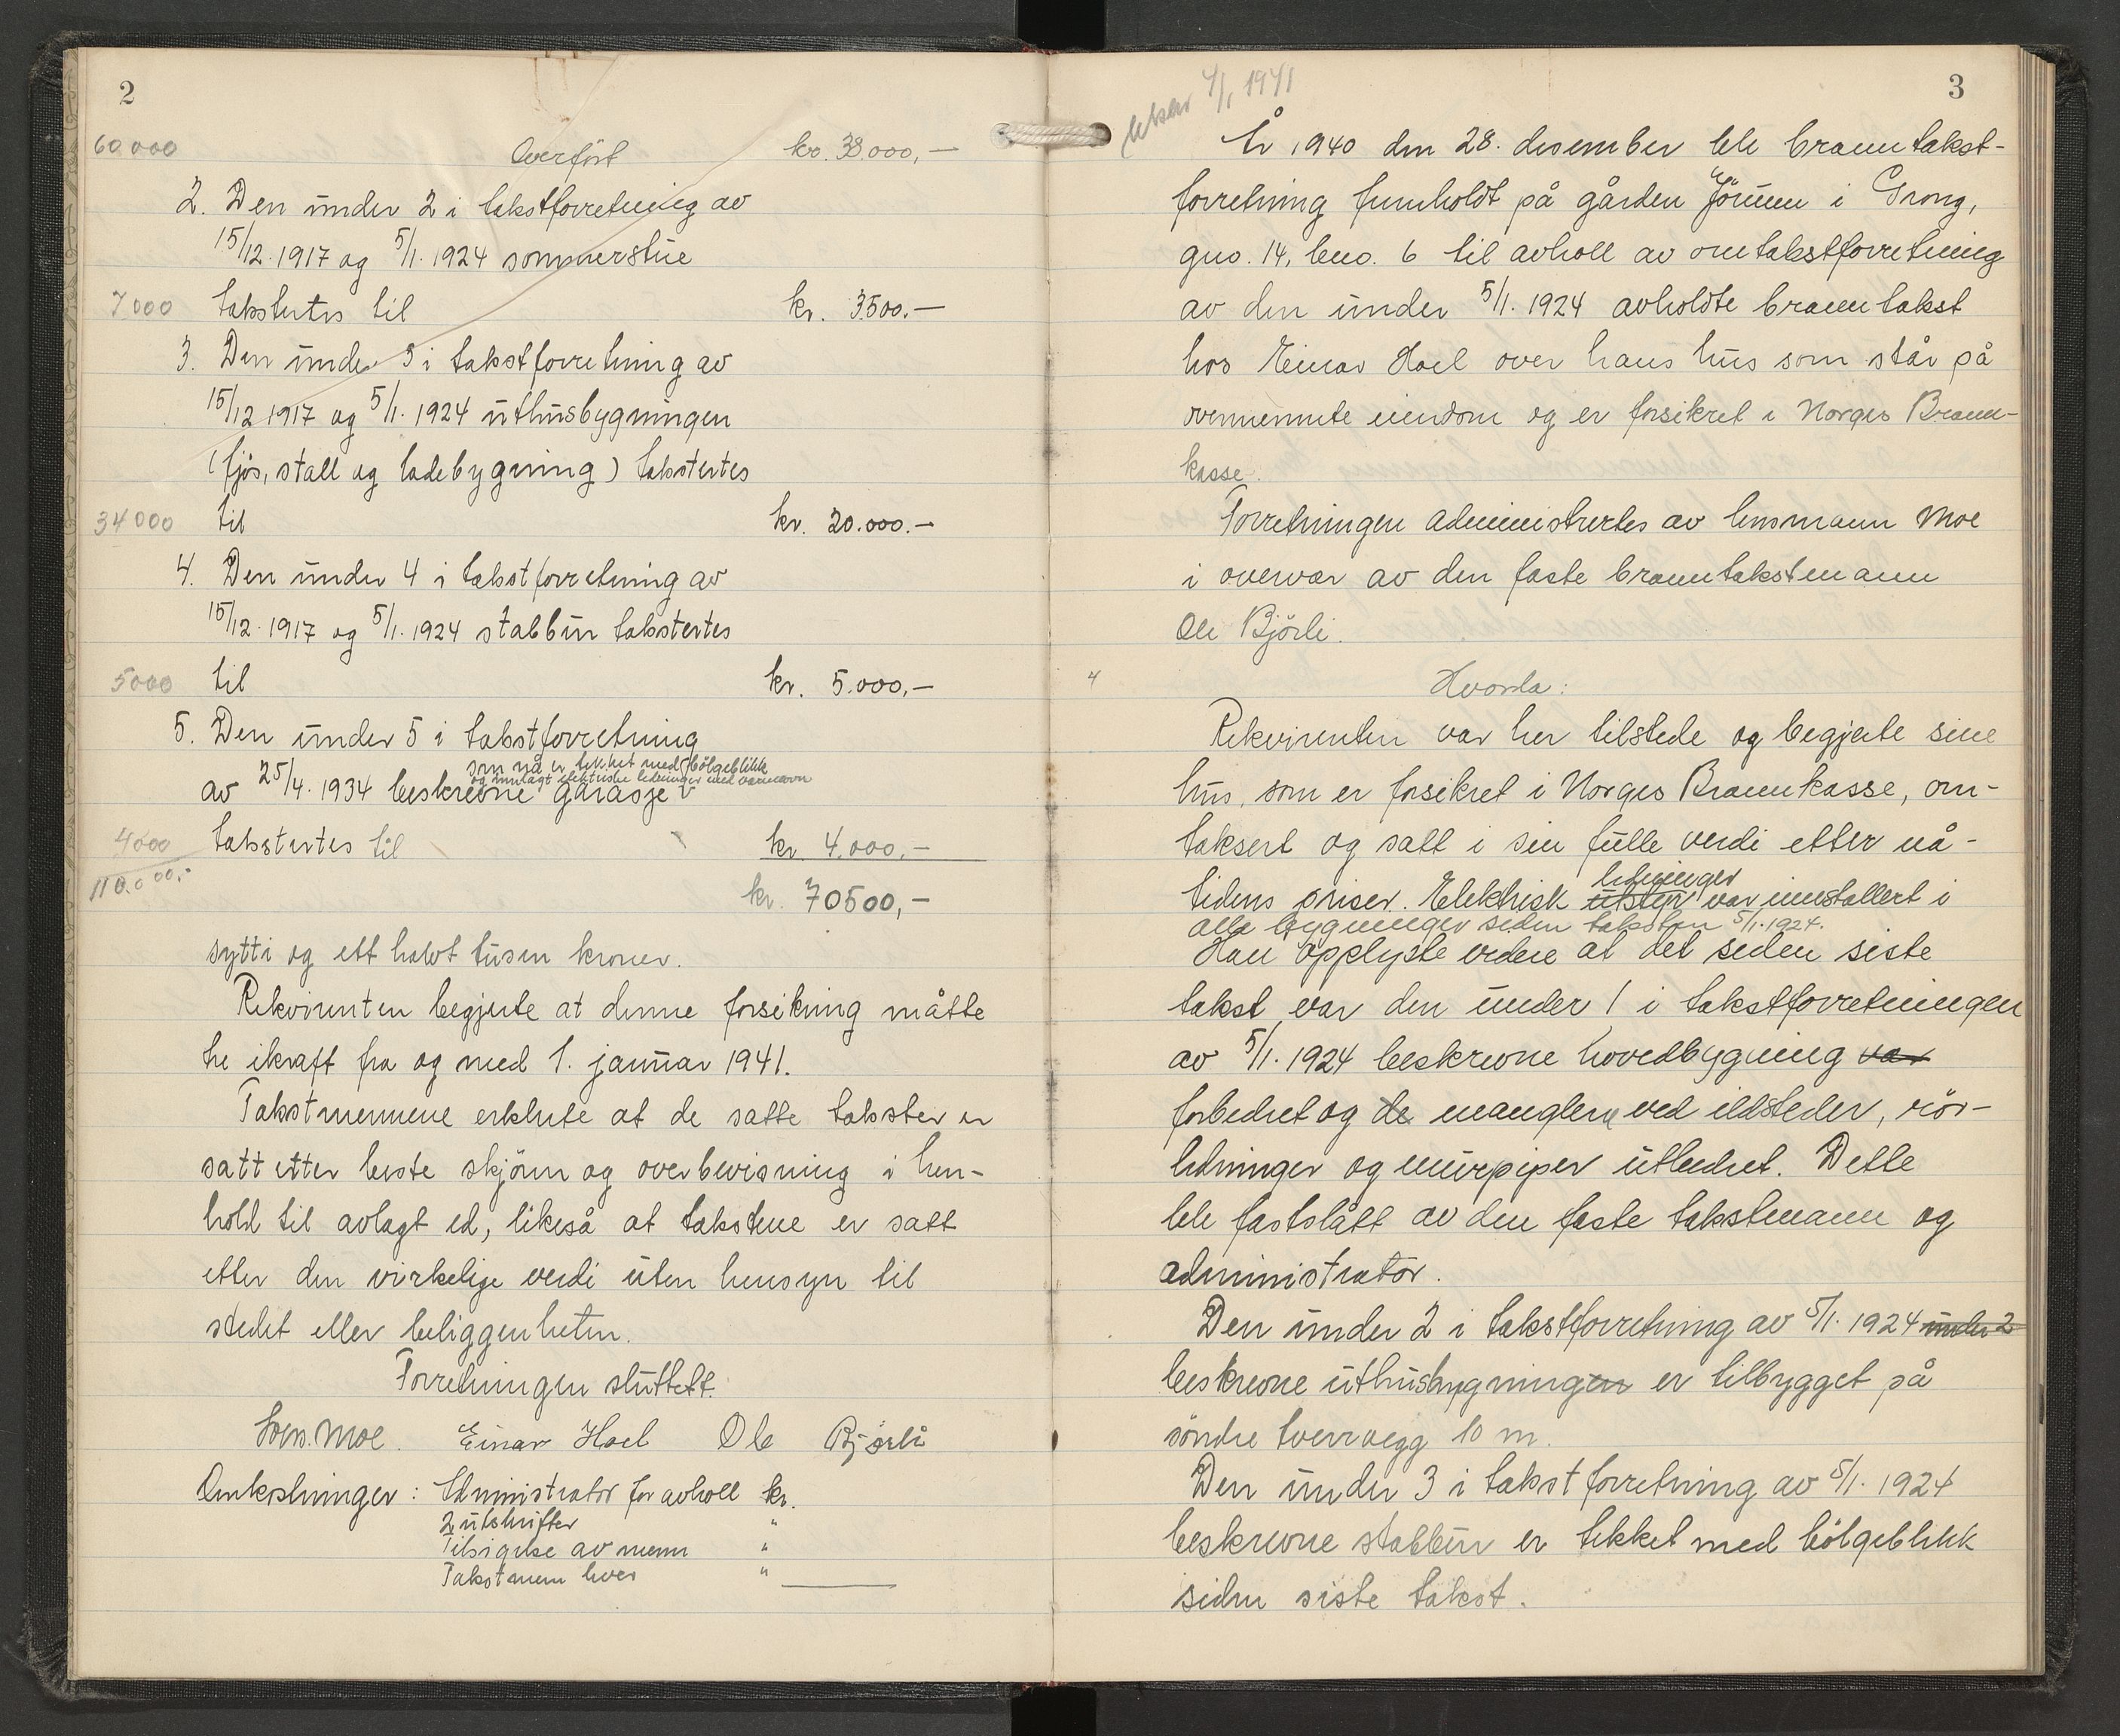 2
60.000 Overført kr. 38.000,—
2. Den under 2 i takstforretning av
15/12. 1917 og 5/1. 1924 sommerstue
7.000 takstertes til kr. 3500.—
3. Den under 3 i takstforretning av
15/12 1917 og 5/1. 1924 uthusbygningen
(fjös, stall og ladebygning) takstertes
34000 til kr. 20.000.—
4. Den under 4 i takstforretning av
15/12. 1917 og 5/1. 1924 stabbur takstertes
5000 til kr. 5.000,—
5. Den under 5 i takstforretning
som nå er tekket med bölgeblikk
og innlagt elektriske ledninger med varmeovn
av 25/4. 1934 beskrevne garasje
4000 takstertes til kr. 4.000.—
110.000,- kr. 70500,—
sytti og ett halvt tusen kroner.
Rekvirenten begjerte at denne forsikring måtte
tre ikraft fra og med 1. januar 1941.
Takstmennene erklærte at de satte takster er
satt etter beste skjönn og overbevisning i hen-
hold til avlagt ed, likeså at takstene er satt
etter den virkelige verdi uten hensyn til
stedet eller beliggenheten.
Forretningen sluttet.
Moe. Einar Hoel Ole Björli
Omkostninger: Administrator for avholl kr.
2 utskrifter "
Tilsigelse av menn "
Takstmenn hver "
3
4/1 1941
År 1940 den 28. desember ble branntakst-
forretning fremholdt på gården Jörum i Grong,
gno. 14, bno. 6 til avholl av omtakstforretning
av den under 5/1. 1924 avholdte branntakst
hos Einar Hoel over hans hus som står på
ovennemnte eiendom og er forsikret i Norges Brann-
kasse.
Forretningen administrertes av lensmann Moe
i overvær av den faste branntakstmann
Ole Björli.
4 Hvorda:
Rekvirenten var her tilstede og begjerte sine
hus, som er forsikret i Norges Brannkasse, om-
taksert og satt i sin fulle verdi etter nå-
ledninger
tidens priser. Elektrisk utstyr var innstallert i
alle bygninger siden taksten 5/1. 1924.
Han opplyste videre at det siden siste
takst var den under 1 i takstforretningen
av 5/1. 1924 beskrevne hovedbygning var
forbedret og de manglene ved ildsteder, rör-
ledninger og murpiper utbedret. Dette
ble fastslått av den faste takstmann og
administrator.
Den under 2 i takstforretning av 5/1. 1924 under 2
beskrevne uthusbygningen er tilbygget på
söndre tverrvegg 10 m.
Den under 3 i takstforretning av 5/1. 1924
beskrevne stabbur er tekket med bölgeblikk
siden siste takst.